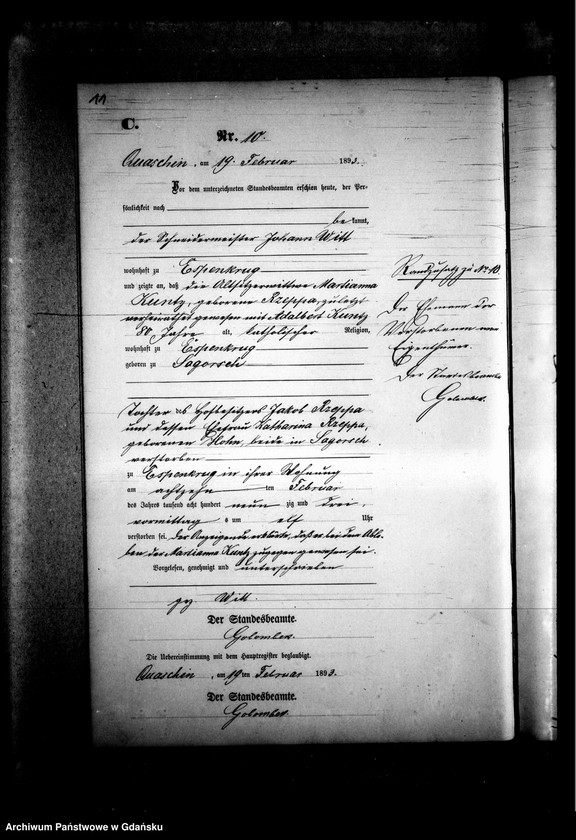 11
C.
Nr. 10.
Quaschin, am 19. Februar 1893.
Vor dem unterzeichneten Standesbeamten erschien heute, der Per-
sönlichkeit nach
be kannt,
der Schneidermeister Johann Witt
wohnhaft zu Espenkrug
und zeigte an, daß die Altsitzerwittwe Marianna
Kuntz, geborene Rzeppa, zuletzt
verheirathet gewesen mit Adalbert Kuntz
80 Jahre alt, katholischer Religion,
wohnhaft zu Espenkrug
geboren zu Sagorsch
Tochter des Hofbesitzers Jakob Rzeppa
und dessen Ehefrau Katharina Rzeppa,
geborenen Hohn, beide in Sagorsch
verstorben
zu Espenkrug in ihrer Wohnung
am achtzehn ten Februar
des Jahres tausend acht hundert neun zig und drei,
vormittag s um elf Uhr
verstorben sei. Der Anzeigende erklärte, daß er bei dem Able-
ben der Marianna Kuntz zugegen gewesen sei.
Vorgelesen, genehmigt und unterschrieben
gez Witt.
Der Standesbeamte.
Golombek.
Die Uebereinstimmung mit dem Hauptregister beglaubigt.
Quaschin, am 19 ten Februar 1893.
Der Standesbeamte.
Golombek
Randzusatz zu No 10.
Der Ehemann der
Verstorbenen war
Eigenthümer.
Der Standesbeamte
Golombek.
Archiwum Państwowe w Gdańsku